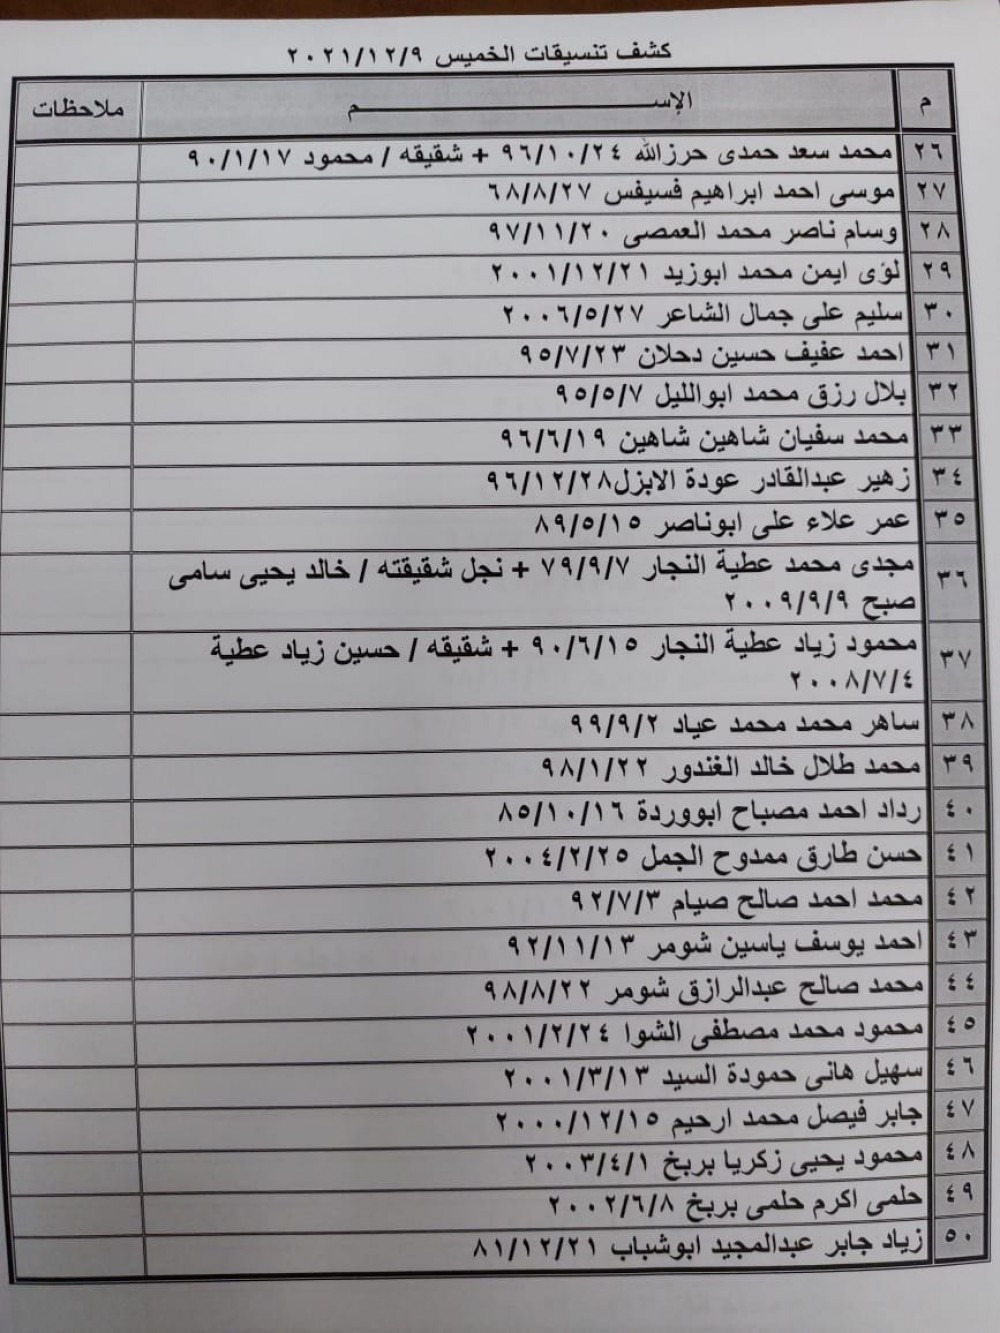 كشف تنسيقات الخميس ٢٠٢١/١٢/٩
م الإســـــــــــم ملاحظات
٢٦ محمد سعد حمدى حرزالله ٩٦/١٠/٢٤ + شقيقه / محمود ٩٠/١/١٧
٢٧ موسى احمد ابراهيم فسيفس ٦٨/٨/٢٧
٢٨ وسام ناصر محمد العمصى ٩٧/١١/٢٠
٢٩ لؤى ايمن محمد ابوزيد ٢٠٠١/١٢/٢١
٣٠ سليم على جمال الشاعر ٢٠٠٦/٥/٢٧
٣١ احمد عفيف حسين دحلان ٩٥/٧/٢٣
٣٢ بلال رزق محمد ابوالليل ٩٥/٥/٧
٣٣ محمد سفيان شاهين شاهين ٩٦/٦/١٩
٣٤ زهير عبدالقادر عودة الابزل٩٦/١٢/٢٨
٣٥ عمر علاء على ابوناصر ٨٩/٥/١٥
٣٦ مجدى محمد عطية النجار ٧٩/٩/٧ + نجل شقيقته / خالد يحيى سامى
صبح ٢٠٠٩/٩/٩
٣٧ محمود زياد عطية النجار ٩٠/٦/١٥ + شقيقه / حسين زياد عطية
٢٠٠٨/٧/٤
٣٨ ساهر محمد محمد عياد ٩٩/٩/٢
٣٩ محمد طلال خالد الغندور ٩٨/١/٢٢
٤٠ رداد احمد مصباح ابووردة ٨٥/١٠/١٦
٤١ حسن طارق ممدوح الجمل ٢٠٠٤/٢/٢٥
٤٢ محمد احمد صالح صيام ٩٢/٧/٣
٤٣ احمد يوسف ياسين شومر ٩٢/١١/١٣
٤٤ محمد صالح عبدالرازق شومر ٩٨/٨/٢٢
٤٥ محمود محمد مصطفى الشوا ٢٠٠١/٢/٢٤
٤٦ سهيل هانى حمودة السيد ٢٠٠١/٣/١٣
٤٧ جابر فيصل محمد ارحيم ٢٠٠٠/١٢/١٥
٤٨ محمود يحيى زكريا بربخ ٢٠٠٣/٤/١
٤٩ حلمى اكرم حلمى بربخ ٢٠٠٢/٦/٨
٥٠ زياد جابر عبدالمجيد ابوشباب ٨١/١٢/٢١